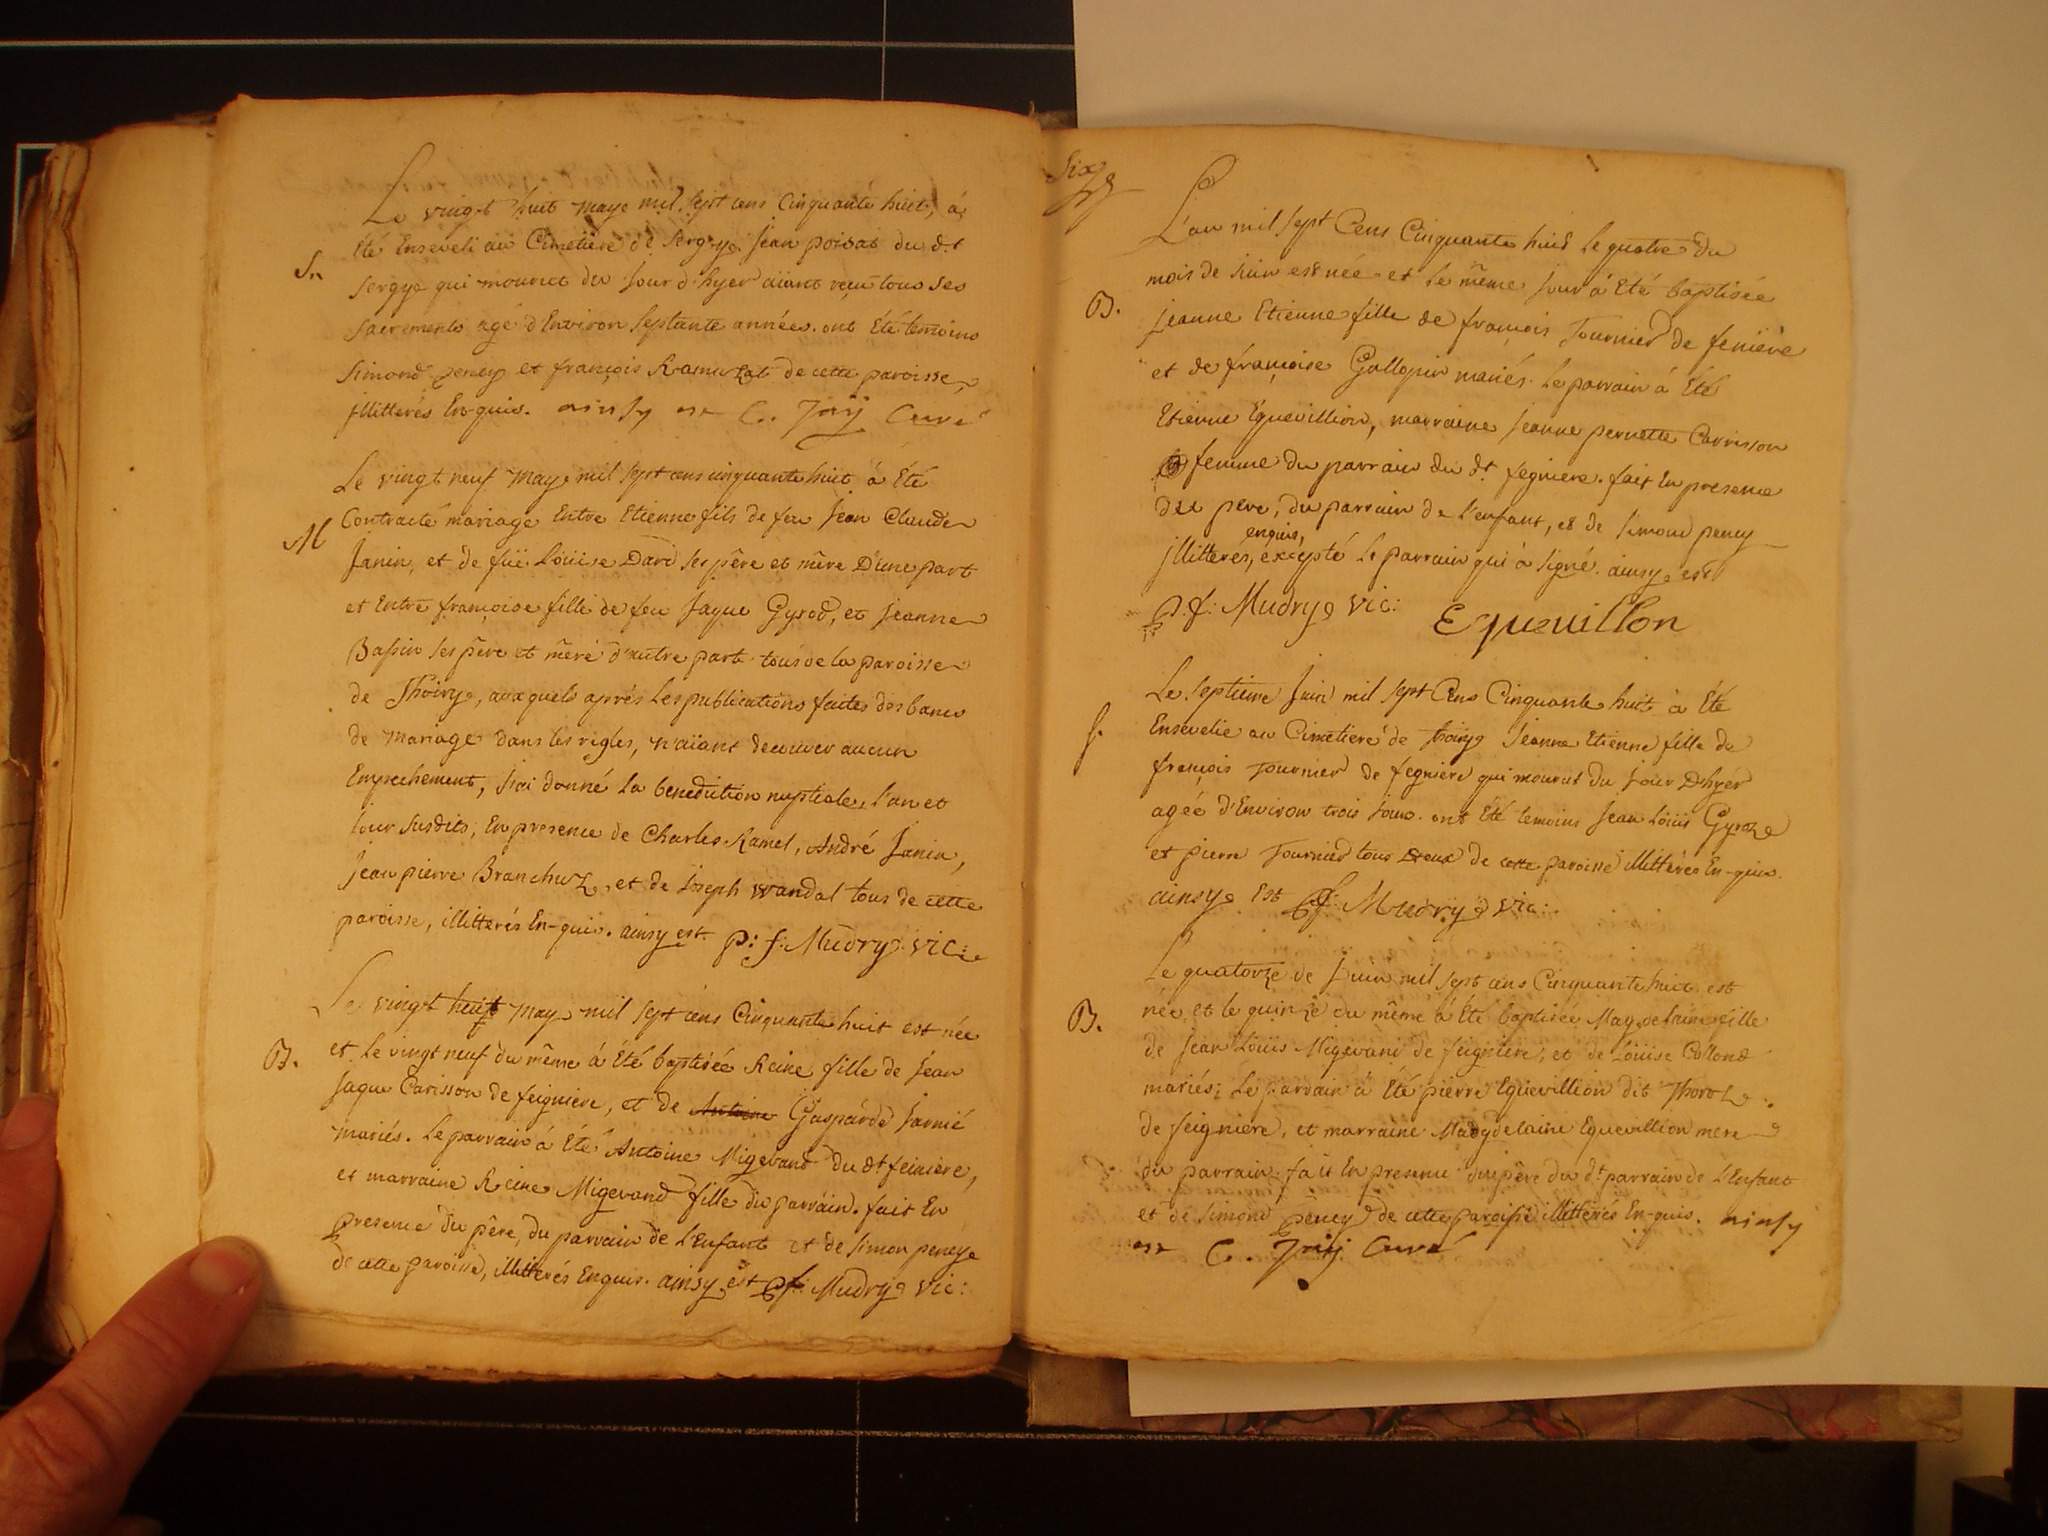 Le vingt huit maye mil sept cens Cinquante huit, à
Sn
Eté Enseveli au Cimetière de Sergye, Jean poisat du dt
Sergye qui mourut du Jour d'hyer aiant reçu tous ses
sacrements agé d'Environ septante années. ont Eté temoins
Simond peney et françois Ramuzat de cette paroisse,
jllitterés En-quis. ainsy est C. Jaÿ Curé
Le vingt neuf maye mil sept cens cinquante huit à Eté
M
Contracté mariage Entre Etienne fils de feu Jean Claude
Janin, et de füe Loüise David ses père et mère D'une part
et Entre françoise fille de feu Jaque Gyrod, et Jeanne
Bassin ses père et mère d'autre part tous de la paroisse
de Thoirye, auxquels après les publications faites des bancs
de mariage dans les règles, n'aïant decouver aucun
Empechement, j'ai donné la benediction nuptiale, l'an et
jour susdits, En presence de Charles Ramel, André Janin,
Jean pierre Branchuz, et de Joseph Wandal tous de cette
paroisse, illitterés En-quis. ainsy est. p: f: Mudry. vic:
Le vingt huit may mil sept cens Cinquante huit est née
B.
et Le vingt neuf du même à Eté baptisée Reine fille de Jean
Jaque Carisson de feigniere, et de Antoine Gasparde Jarnié
mariés. Le parrain à Eté Antoine Migevand du dt feiniere,
et marraine Reine Migevand fille du parrain. fait En
presence du père, du parrain de L'Enfant et de Simon peneye
de cette paroisse, illitterés Enquis. ainsy est pf: Mudrye vic:
Six
L'an mil sept Cens Cinquante huit Le quatre du
mois de Juin est née et Le même jour à Eté baptisée
B.
Jeanne Etienne fille de françois Tournier de feniere
et de françoise Gallopin mariés. Le parrain à Eté
Etienne Equevillion, marraine Jeanne pernette Carrisson
femme du parrain du dt fegniere. fait En presence
du pere, du parrain de l'enfant, et de Simond peney
enquis,
jllitterés, excepté Le parrain qui à signé. ainsy est
p. f: Mudrye vic: Equevillon
Le septieme Juin mil sept Cens Cinquante huit à Eté
S.
Ensevelie au Cimetiere de thoirye Jeanne Etienne fille de
françois Tournier de fegniere qui mourut du Jour D'hyer
agée d'Environ trois jours. ont Eté temoins Jean Loüis Gyroz
et pierre Tournier tous deux de cette paroisse illitterés En-quis.
ainsye est pf: Mudrye vic:
Le quatorze de Juin mil sept cens Cinquante huit est
B.
née, et le quinze du même à Eté baptisée Maydelaine fille
de Jean Loüis Migevand de feigniere, et de Loüise Colland
mariés; Le parrain à Eté pierre Equevillion dit
de feigniere, et marraine Madydelaine Equevillion mere
du parrain. fait En presence du père du dt parrain de L'Enfant
et de Simond peney de cette paroisse illitterés En-quis. ainsy
est C. Jaÿ Curé